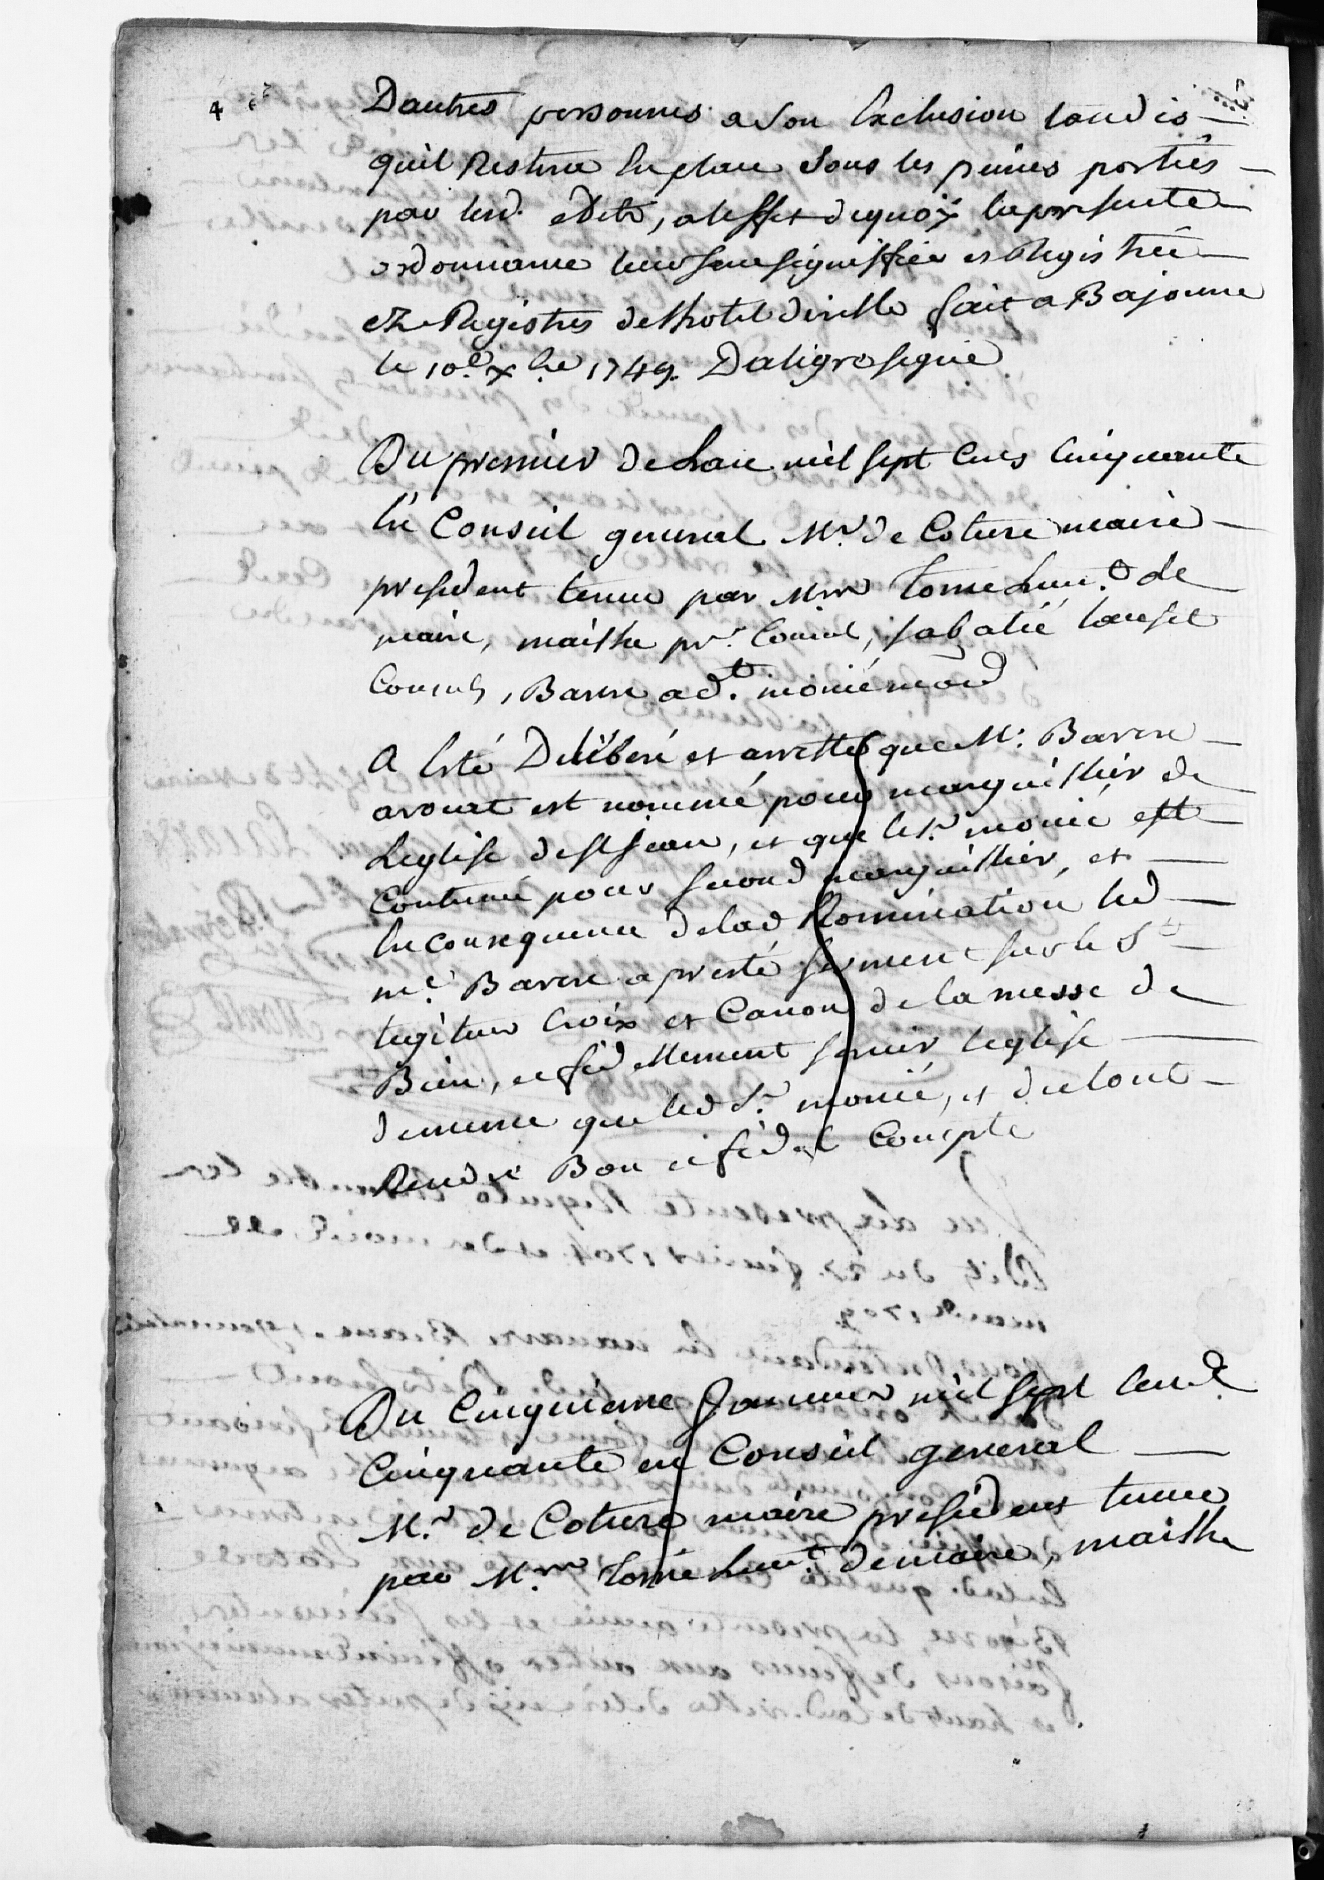 4
Dautres personnes a son Exclusion tandis
quil Restera En place sous les peines portées
par lesd. edits, a leffet dequoÿ la presente
ordonnance leur sera signiffiée et Registrée
ez Registres delhotel deville fait a Bajonne
le 10.e xbre 1749. Daligre signé
Du premier de Lan mil sept Cens Cinquante
En Conseil general Mr. de Coture maire
president tenue par Mrs Tome Lieu.t de
maire, maistre pr. Consul, sabatié
Consuls, Barere ad.t monié
A Esté Deliberé et arretté que Mr. Barere
avocat est nommé pour marguillier de
Leglise de St Jean, et que le sr. monié est
Continué pour second marguillier, et
En consequence delad Nomination led
mr. Barere a presté serment sur le St
tegitur Croix et Canon de la messe de
Bien, et fidellement servir leglise
dememe que led Sr. monié, et du tout
Rendre Bon et fidel Compte
Du Cinquieme Janvier mil sept Cens
Cinquante en Conseil general
Mr. de Coture maire president tenue
par Mrs Tomé Lieut. demaire, maistre